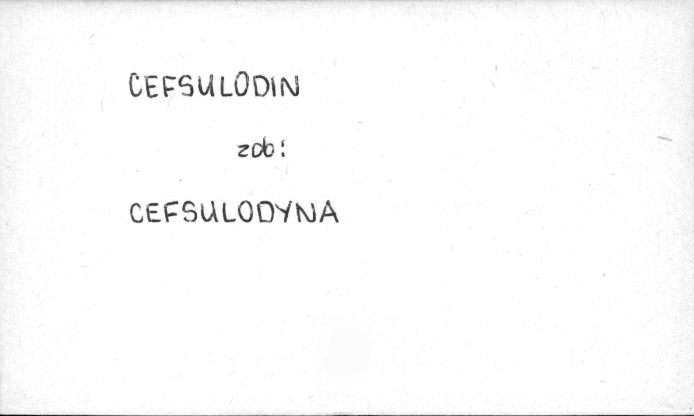 CEFSULODIN
zob:
CEFSULODYNA